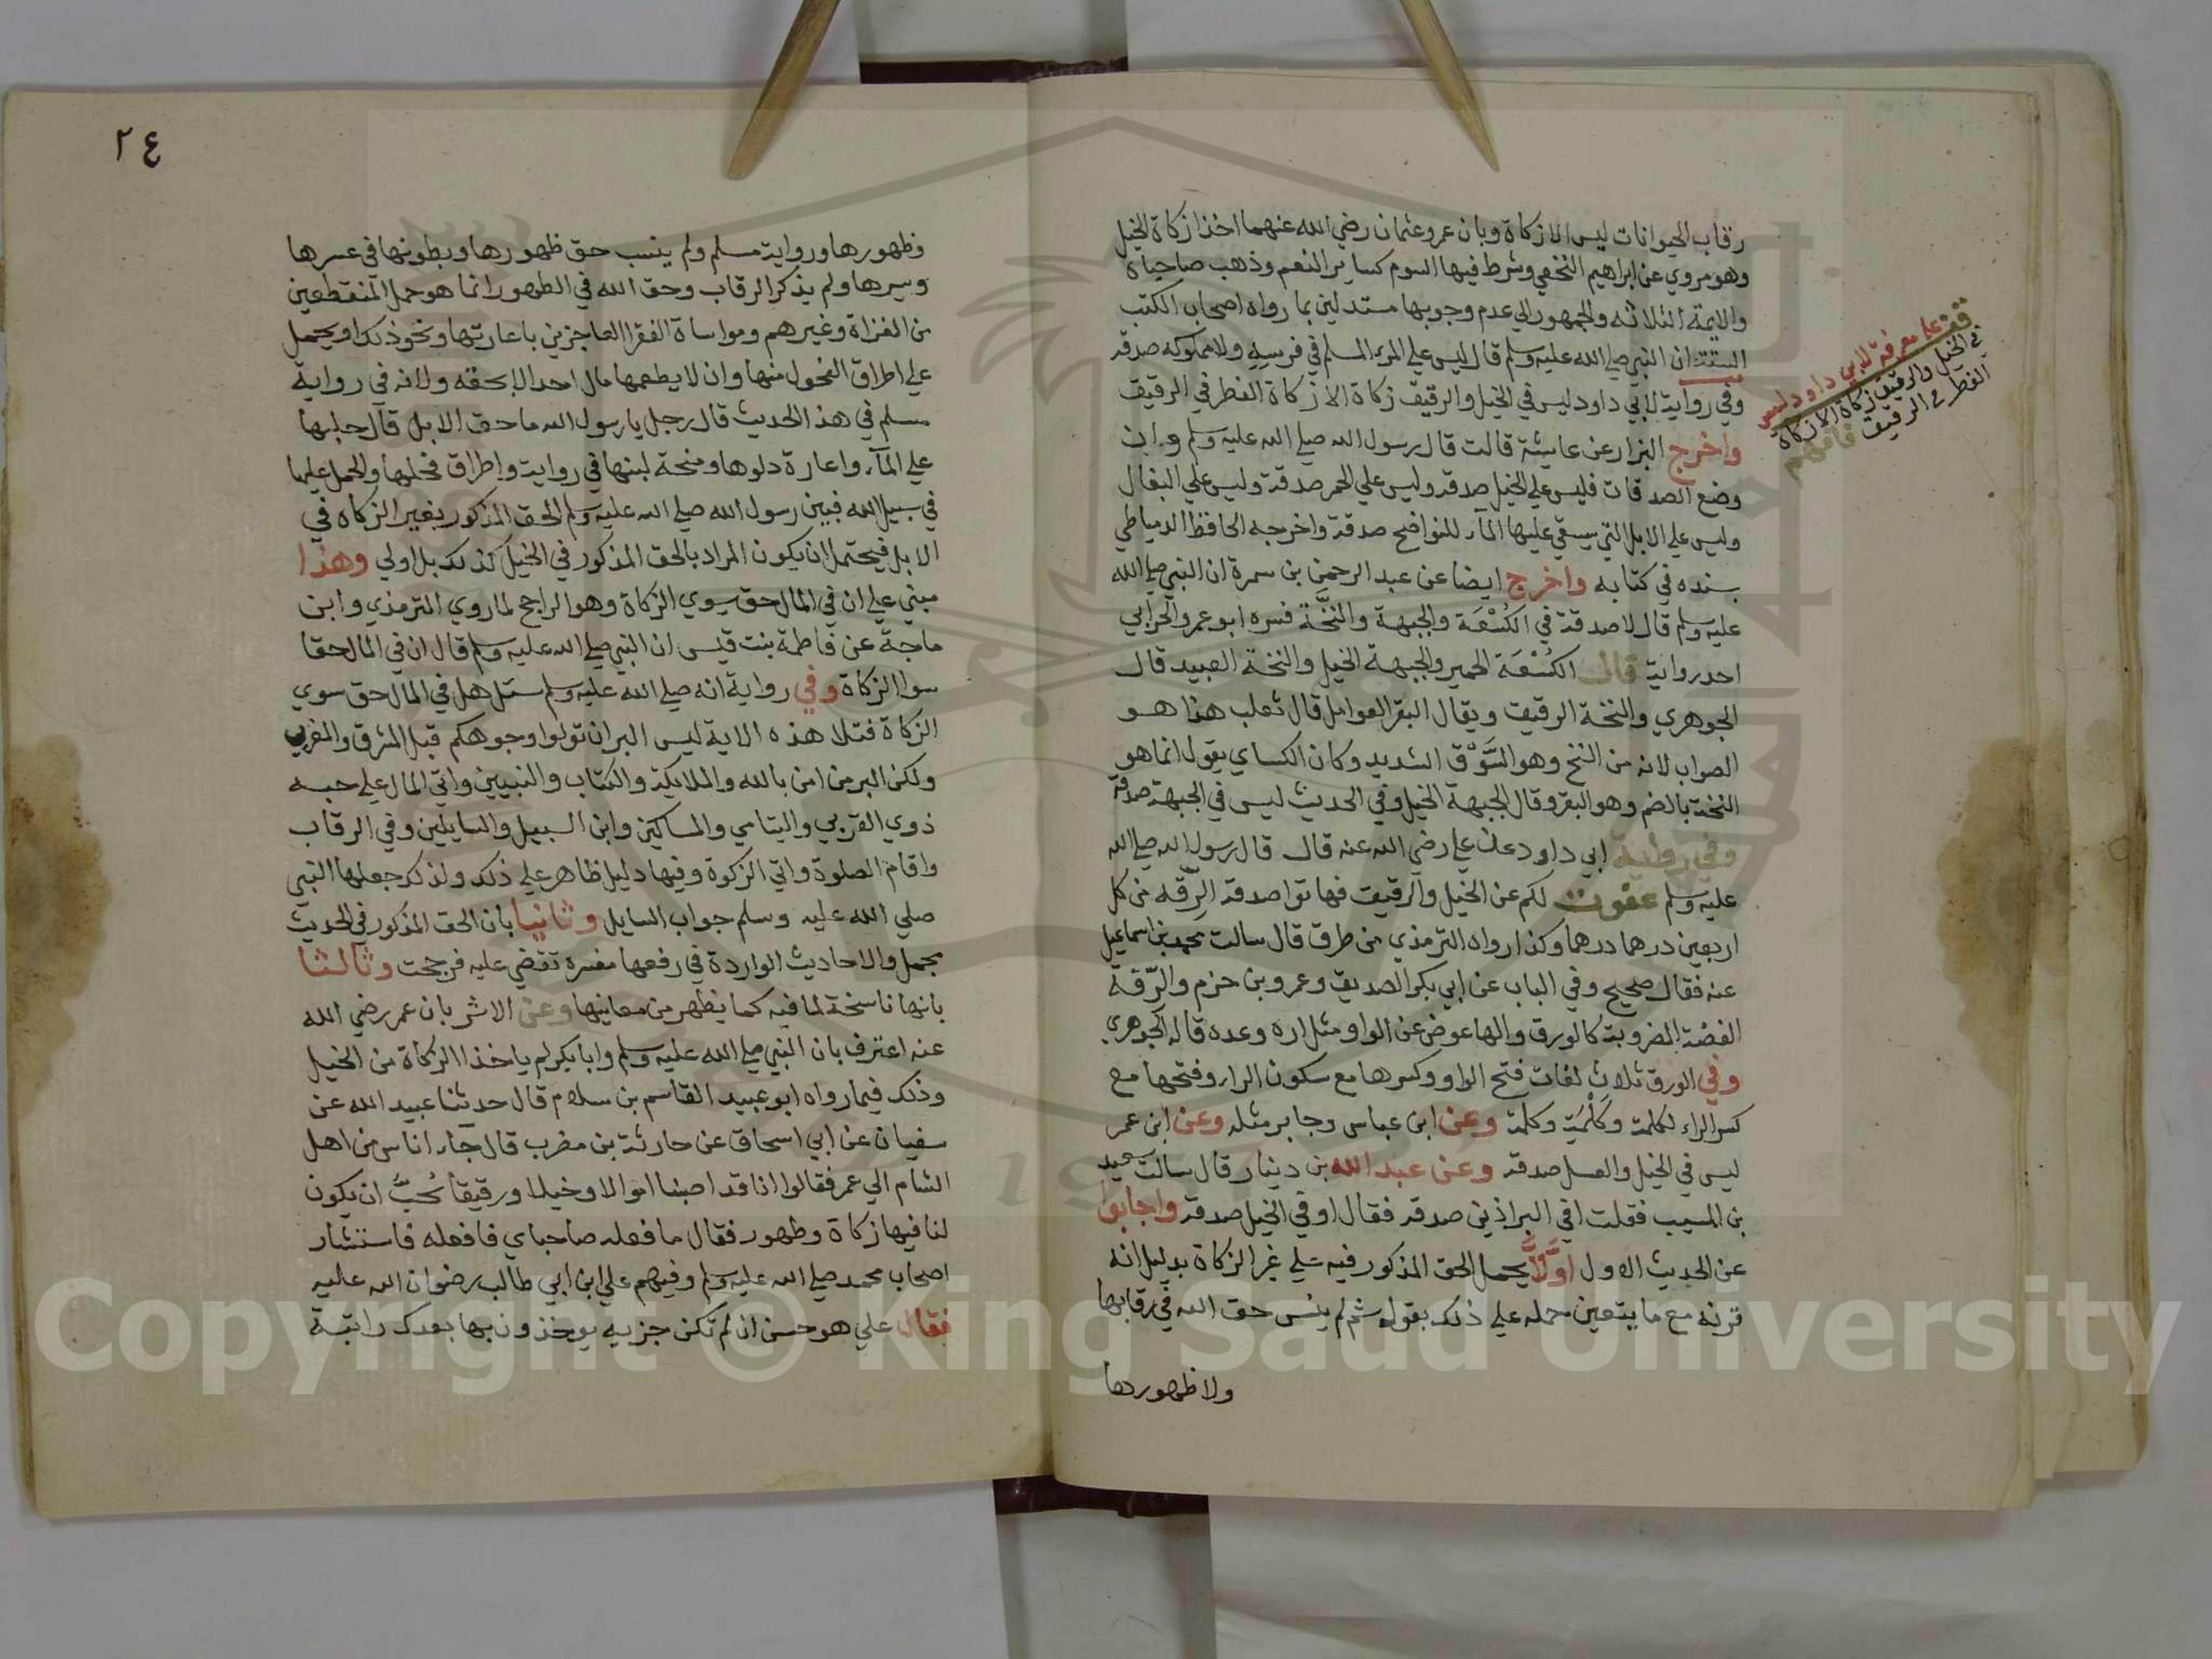 رقاب الحيوانات ليس الا زكاة وبان عمر وعثمان رضي الله عنهما اخذا زكاة الخيل
وهو مروي عن ابراهيم النخعي وشرط فيها السوم كساير النعم وذهب صاحباه
والايمة الثلاثه والجمهور الي عدم وجوبها مستدلين بما رواه اصحاب الكتب
الستة ان النبي صلي الله عليه وسلم قال ليس علي المرء المسلم في فرسه ولا مملوكه صدقة
وفي رواية لابي داود ليس في الخيل والرقيق زكاة الا زكاة الفطر في الرقيق
واخرج البزار عن عايشة قالت قال رسول الله صلي الله عليه وسلم وان
وضع الصدقات فليس علي الخيل صدقة وليس علي الحمر صدقة وليس علي البغال
وليس علي الابل التي يسقي عليها الماء للنواضح صدقة واخرجه الحافظ الدمياطي
بسنده في كتابه واخرج ايضا عن عبد الرحمن بن سمرة ان النبي صلي الله
عليه وسلم قال لا صدقة في الكُسْعَة والجبهة والنخَّة فسره ابو عمرو الحرابي
احد رواية قال الكُسْعَة الحمير والجبهة الخيل والنخة العبيد قال
الجوهري والنخة الرقيق ويقال البقر العوامل قال ثعلب هذا هو
الصواب لانه من النخ وهو السَّوْق الشديد وكان الكساي يقول انما هو
النخة بالضم وهو البقر وقال الجبهة الخيل وفي الحديث ليس في الجبهة صدقة
وفي رواية ابي داود عن علي رضي الله عنه قال قال رسول الله صلي الله
عليه وسلم عفوت لكم عن الخيل والرقيق فهاتوا صدقة الرّقه من كل
اربعين درهما درهما وكذا رواه الترمذي من طرق قال سالت محمد بن اسماعيل
عنه فقال صحيح وفي الباب عن ابي بكر الصديق وعمرو بن حزم والرّقة
الفضة المضروبة كالورق والها عوض عن الواو مثل اره وعده قاله الجوهري
وفي الورق ثلاث لغات فتح الواو وكسرها مع سكون الراء وفتحها مع
كسر الراء ككلمة وكَلْمَة وكلمة وعن ابن عباس وجابر مثله وعن ابن عمر
ليس في الخيل والعسل صدقة وعن عبد الله بن دينار قال سالت سعيد
بن المسيب فقلت افي البراذين صدقة فقال اوفي الخيل صدقة واجابوا
عن الحديث الاول اوّلا يحمل الحق المذكور فيه علي غير الزكاة بدليل انه
قرنه مع ما يتعين حمله علي ذلك بقوله ثم لم ينس حق الله في رقابها
ولا ظهورها
قف علي معرفة لابي داود ليس
في الخيل والرقيق زكاة الا زكاة
الفطر في الرقيق فافهم
٢٤
وظهورها ورواية مسلم ولم ينس حق ظهورها وبطونها في عسرها
ويسرها ولم يذكر الرقاب وحق الله في الظهور انما هو حمل المنقطعين
من الغزاة وغيرهم ومواساة الفقرا العاجزين باعارتها ونحو ذلك او يحمل
علي اطراق الفحول منها وان لا يطعمها مال احد الا بحقه ولانه في رواية
مسلم في هذا الحديث قال رجل يا رسول الله ما حق الابل قال حلبها
علي الماء واعارة دلوها ومنحة لبنها في رواية واطراق فحلها والحمل عليها
في سبيل الله فبين رسول الله صلي الله عليه وسلم الحق المذكور بغير الزكاه في
الابل فيحتمل ان يكون المراد بالحق المذكور في الخيل كذلك بل اولي وهذا
مبني علي ان في المال حق سوي الزكاة وهو الراجح لما روي الترمذي وابن
ماجة عن فاطمة بنت قيس ان النبي صلي الله عليه وسلم قال ان في المال حقا
سوا الزكاة وفي رواية انه صلي الله عليه وسلم سئل هل في المال حق سوي
الزكاة فتلا هذه الاية ليس البر ان تولوا وجوهكم قبل المشرق والمغرب
ولكن البر من امن بالله والملايكة والكتاب والنبيين واتي المال علي حبه
ذوي القربي واليتامي والمساكين وابن السبيل والسايلين وفي الرقاب
واقام الصلوة واتي الزكوة وفيها دليل ظاهر علي ذلك ولذلك جعلها النبي
صلي الله عليه وسلم جواب السايل وثانيا بان الحق المذكور في الحديث
مجمل والاحاديث الواردة في رفعها مفسره تقضي عليه فرجحت وثالثا
بانها ناسخة لما فيه كما يظهر من معانيها وعن الاثر بان عمر رضي الله
عنه اعترف بان النبي صلي الله عليه وسلم وابا بكر لم ياخذا الزكاة من الخيل
وذلك فيما رواه ابو عبيد القاسم بن سلام قال حدثنا عبيد الله عن
سفيان عن ابي اسحاق عن حارثة بن مضرب قال جاء اناس من اهل
الشام الي عمر فقالوا انا قد اصبنا اموالا وخيلا ورقيقا نُحبُّ ان يكون
لنا فيها زكاة وطهور فقال ما فعله صاحباي فافعله فاستشار
اصحاب محمد صلي الله عليه وسلم وفيهم علي ابن ابي طالب رضوان الله عليه
فقال علي هو حسن ان لم تكن جزيه يوخذون بها بعدك راتبة
Copyright © King Saud University